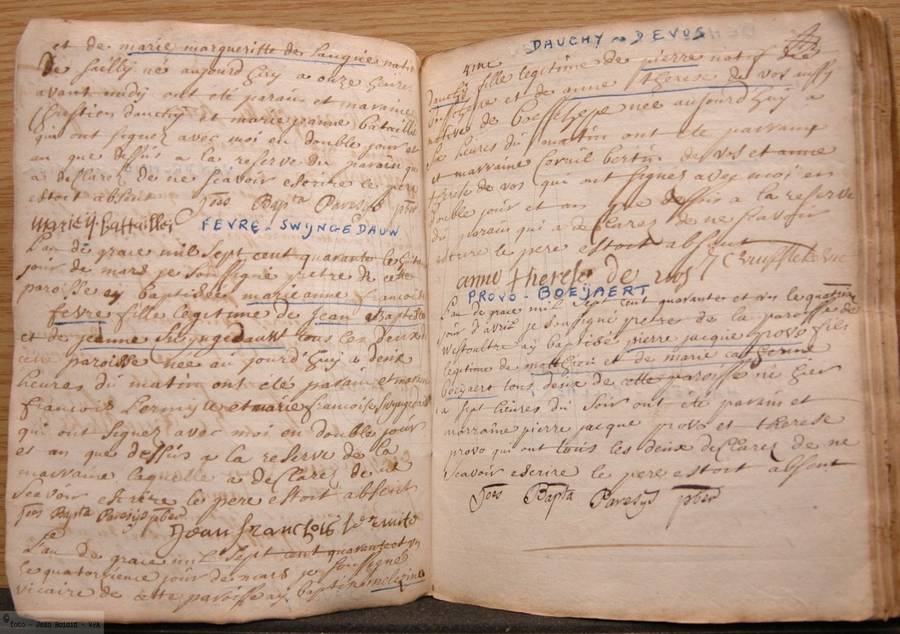 et de marie margueritte de
de Sailly né aujourd'huy a onze heures
avant midy ont eté parain et maraine
Chrestien Dauchy et marie jeanne bataille
qui ont signez avec moi en double jour et
an que dessus a la reserve du parain qui
a declarez de ne scavoir escrire le pere
estoit absent Joes Bapta Paresys pbter
FEVRE - SWYNGEDAUW
L'an de grace mil sept cent quarante
jour de mars je soussigné pretre de cette
paroisse ay baptisée marie anne francoise
fevre fille legitime de jean Baptiste
et de jeanne Swyngedauw tous les deux de
cette paroisse née au jourd'huy a deux
heures du matin ont eté parain et maraine
francois et marie francoise Swyngedauw
qui ont signez avec moi en double jour
et an que dessus a la reserve de la
marraine laquelle a declarez de ne
scavoir escrire le pere estoit absent
Joes Bapta Paresys pbter
Jean francois
L'an de grace mil sept cent quarante et un
le quatorzieme jour de mars je soussigné
vicaire de cette paroisse ay baptisé
foto - Jean Roloid - VVA
DAUCHY - DEVOS
4me
Dauchy fille legitime de pierre natif de
et de anne therese de vos aussy
native de née aujourd'huy a
heures du matin ont ete parrain
et marraine Cornil bertin de vos et anne
therese de vos qui ont signez avec moi en
double jour et an que dessus a la reserve
du parain qui a declarez de ne scavoir
escrire le pere estoit absent
anne therese de vos
PROVO - BOEIJAERT
L'an de grace mil sept cent quarante et un le quatrieme
jour d'avril je soussigné pretre de la paroisse de
Westoultre ay baptisé pierre jacque provo fils
legitime de et de marie catherine
boeijaert tous deux de cette paroisse né hier
a sept heures du soir ont eté parain et
marraine pierre jacque provo et therese
provo qui ont tous les deux declarez de ne
scavoir escrire le pere estoit absent
Joes Bapta Paresys pbter